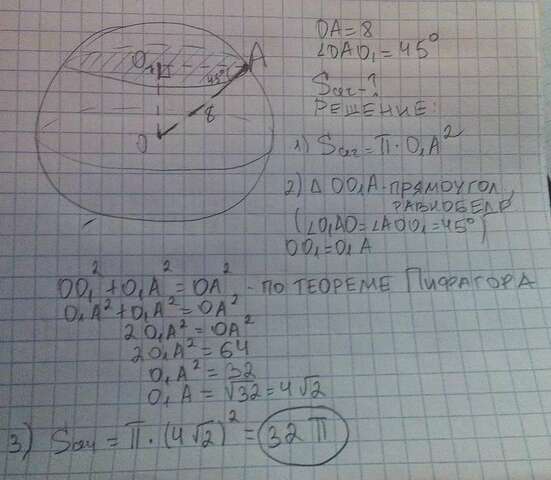 O₁
A
45°
8
O
OA = 8
∠OAO₁ = 45°
Sсеч - ?
РЕШЕНИЕ:
1) Sсеч = π · O₁A²
2) Δ OO₁A - ПРЯМОУГОЛ,
РАВНОБЕДР
(∠O₁AO = ∠AOO₁ = 45°)
OO₁ = O₁A
OO₁² + O₁A² = OA² - ПО ТЕОРЕМЕ ПИФАГОРА
O₁A² + O₁A² = OA²
2O₁A² = OA²
2O₁A² = 64
O₁A² = 32
O₁A = √32 = 4√2
3) Sсеч = π · (4√2)² = 32 π